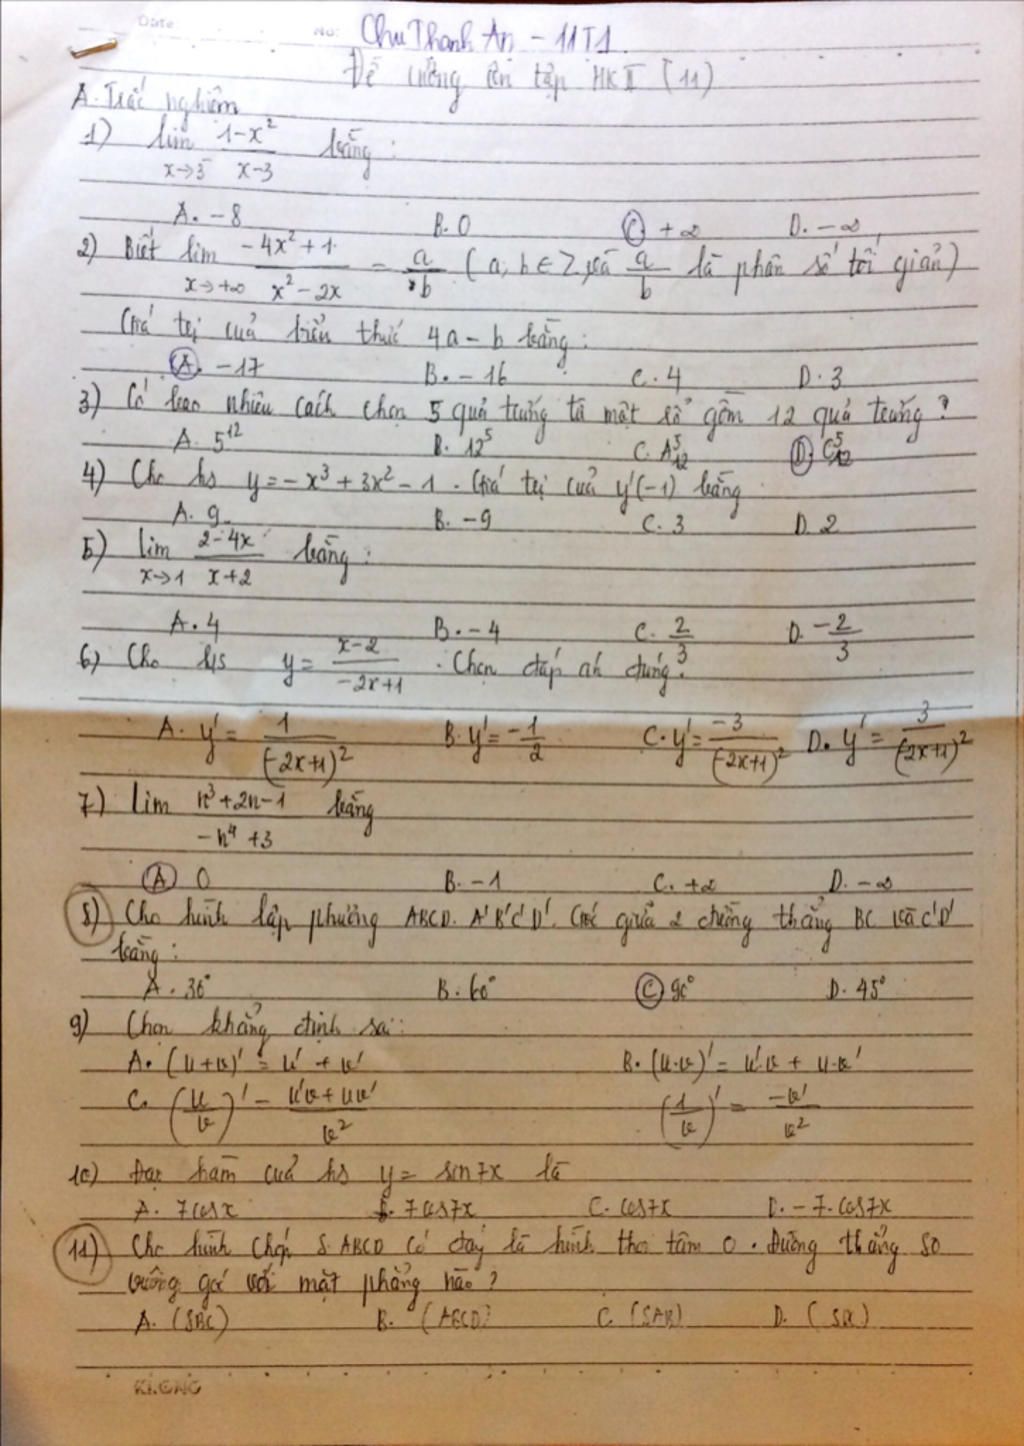 Date No: Chu Thanh An - 11T1
Đề cương ôn tập HK II (11)
A. Trắc nghiệm
1) lim x→3⁻ (1-x²)/(x-3) bằng:
A. -8 B. 0 C. +∞ D. -∞
2) Biết lim x→+∞ (-4x²+1)/(x²-2x) = a/b (a, b ∈ Z, và a/b là phân số tối giản)
Giá trị của biểu thức 4a - b bằng:
A. -17 B. -16 C. 4 D. 3
3) Có bao nhiêu cách chọn 5 quả trứng từ một rổ gồm 12 quả trứng?
A. 5¹² B. 12⁵ C. A⁵₁₂ D. C⁵₁₂
4) Cho hs y = -x³ + 3x² - 1. Giá trị của y'(-1) bằng
A. 9 B. -9 C. 3 D. 2
5) lim x→1 (2-4x)/(x+2) bằng:
A. 4 B. -4 C. 2/3 D. -2/3
6) Cho hs y = (x-2)/(-2x+1). Chọn đáp án đúng?
A. y' = 1/(-2x+1)² B. y' = -1/2 C. y' = -3/(-2x+1)² D. y' = 3/(-2x+1)²
7) lim (n³+2n-1)/(-n⁴+3) bằng
A. 0 B. -1 C. +∞ D. -∞
8) Cho hình lập phương ABCD. A'B'C'D'. Góc giữa 2 đường thẳng BC và C'D'
bằng:
A. 30° B. 60° C. 90° D. 45°
9) Chọn khẳng định sai:
A. (u+v)' = u' + v' B. (u.v)' = u'.v + u.v'
C. (u/v)' = (u'v+uv')/v² (1/v)' = -v'/v²
10) Đạo hàm của hs y = sin7x là
A. 7cosx B. 7cos7x C. cos7x D. -7.cos7x
11) Cho hình chóp S.ABCD có đáy là hình thoi tâm O. Đường thẳng SO
vuông góc với mặt phẳng nào?
A. (SBC) B. (ABCD) C. (SAB) D.
KLONG